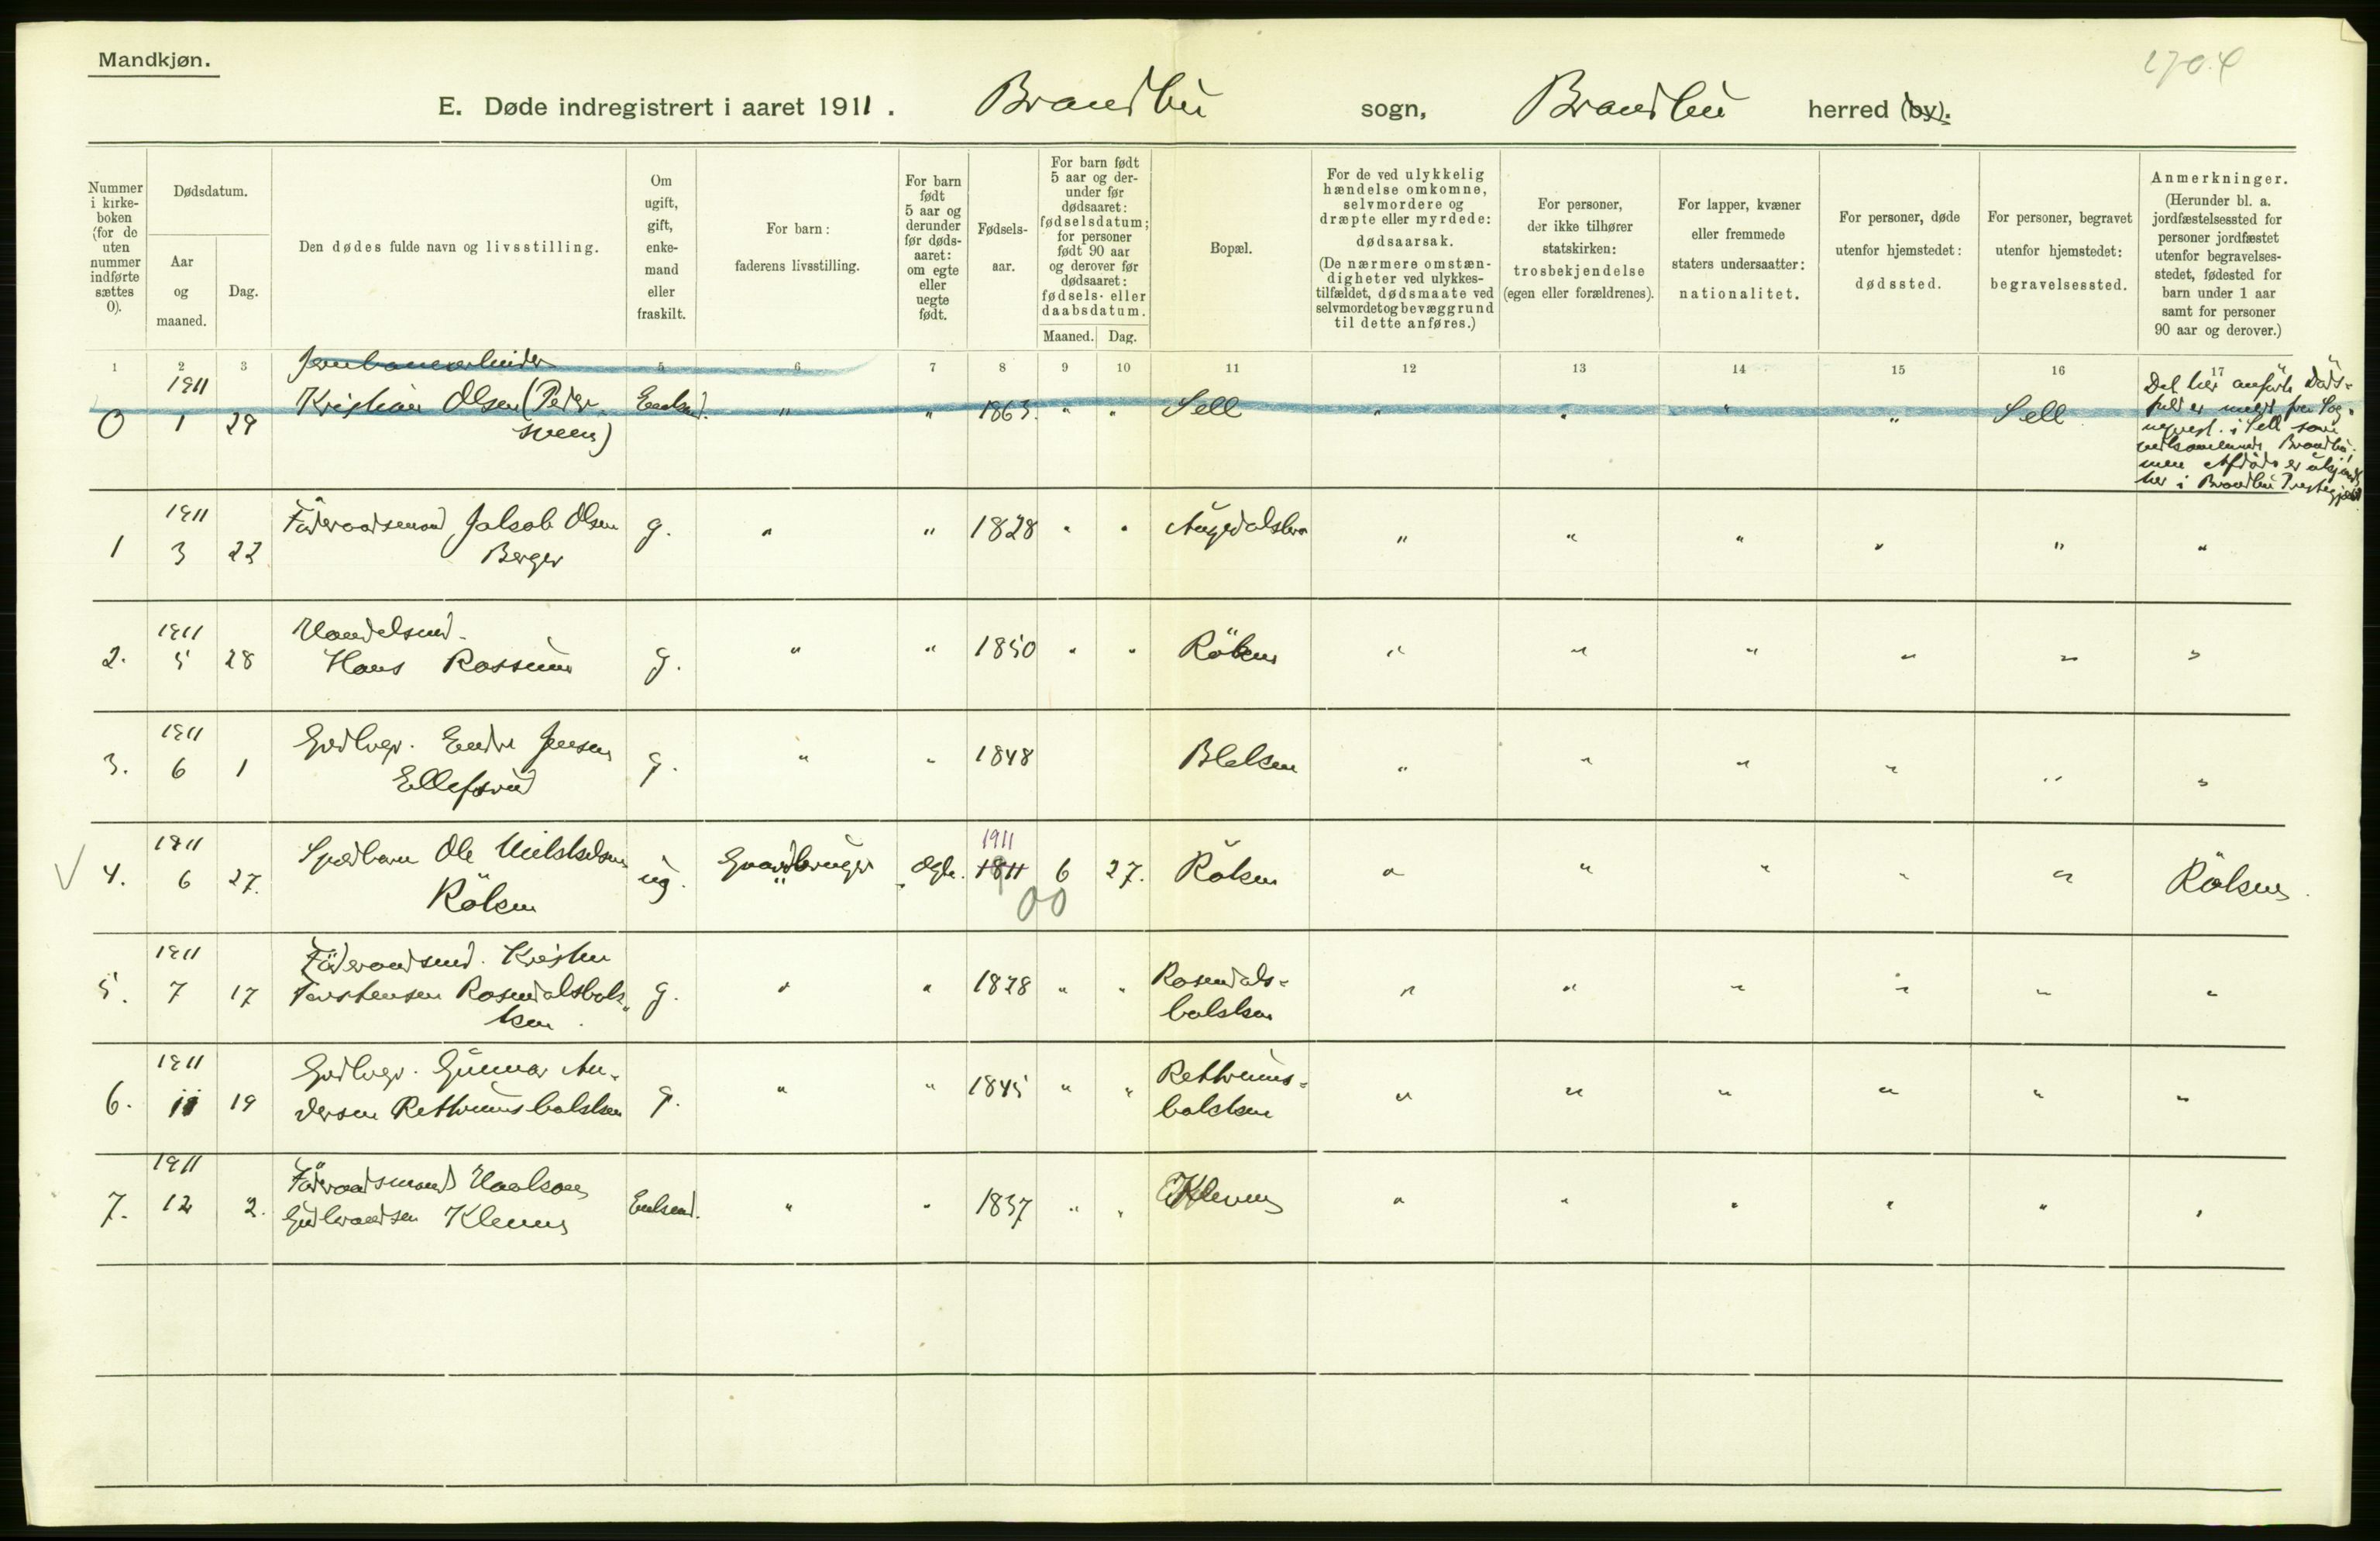 Mandkjøn.
E. Døde indregistrert i aaret 1911. Brandbu sogn, Brandbu herred (by).
Nummer i kirke-boken (for de uten nummer indførte sættes 0).
Dødsdatum.
Aar og maaned.
Dag.
Den dødes fulde navn og livsstilling.
Om ugift, gift, enke-mand eller fraskilt.
For barn: faderens livsstilling.
For barn født 5 aar og derunder før døds-aaret: om egte eller uegte født.
Fødsels-aar.
For barn født 5 aar og der-under før dødsaaret: fødselsdatum; for personer født 90 aar og derover før dødsaaret: fødsels- eller daabsdatum.
Maaned. Dag.
Bopæl.
For de ved ulykkelig hændelse omkomne, selvmordere og dræpte eller myrdede: dødsaarsak. (De nærmere omstæn-digheter ved ulykkes-tilfældet, dødsmaate ved selvmord og bevæggrund til dette anføres.)
For personer, der ikke tilhører statskirken: trosbekjendelse (egen eller forældrenes).
For lapper, kvæner eller fremmede staters undersaatter: nationalitet.
For personer, døde utenfor hjemstedet: dødssted.
For personer, begravet utenfor hjemstedet: begravelsessted.
Anmerkninger. (Herunder bl. a. jordfæstelsessted for personer jordfæstet utenfor begravelses-stedet, fødested for barn under 1 aar samt for personer 90 aar og derover.)
1 2 3 5 6 7 8 9 10 11 12 13 14 15 16 17
Jernbanearbeider
1911
0 1 29 Kristian Olsen (Peder- Enkemd. " " 1863. " " Sell " " " " Sell
sveen)
Det her anførte Døds-
fald er meldt fra Sog-
neprest. i Sell som
vedkommende Brandbu,
men Afdøde er ukjendt
her i Brandbu Prestegjæld.
1911
1 3 22 Föderaadsmand Jakob Olsen g. " " 1828 " " " " " " " "
Berger
1911 Handelsmd.
2. 5 28 Hans Rossum g. " " 1850 " " Röken " " " " " "
1911
3. 6 1 Grdbrgr. Endre Jensen g. " " 1848 " " " " " "
Ellefsrud
1911 1911
4. 6 27. Spædbarn Ole ug. Gaardbruger Egte. 1811 6 27. Röken " " " " " Röken
Röken 00
1911
5. 7 17 Föderaadsmd. Kristen g. " " 1828 " " Rosendals- " " " " " "
Torstensen Rosendalsbak- bakken
ken
1911
6. 11 19 Grdbrgr. Gunnar An- g. " " 1845 " " Rethrums- " " " " " "
dersen Rethrumsbakken bakken
1911
7. 12 2. Föderaadsmand Haakon Enkemd. " " 1837 " " Kleven " " " " " "
Gudbrandsen Kleven